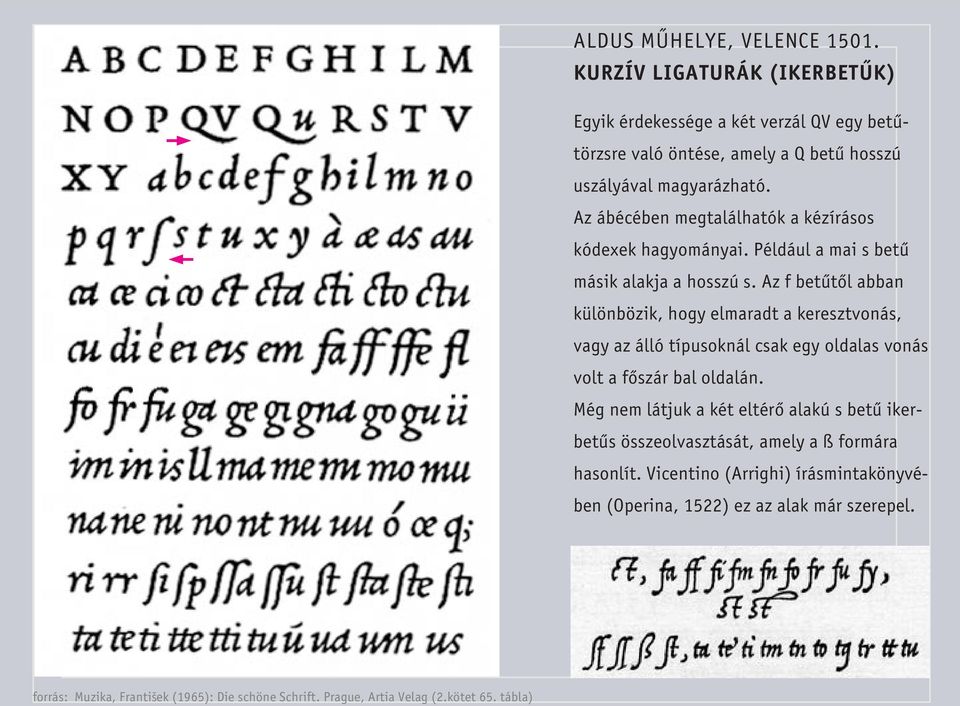 ALDUS MŰHELYE, VELENCE 1501.
KURZÍV LIGATURÁK (IKERBETŰK)
Egyik érdekessége a két verzál QV egy betű-
törzsre való öntése, amely a Q betű hosszú
uszályával magyarázható.
Az ábécében megtalálhatók a kézírásos
kódexek hagyományai. Például a mai s betű
másik alakja a hosszú s. Az f betűtől abban
különbözik, hogy elmaradt a keresztvonás,
vagy az álló típusoknál csak egy oldalas vonás
volt a főszár bal oldalán.
Még nem látjuk a két eltérő alakú s betű iker-
betűs összeolvasztását, amely a ß formára
hasonlít. Vicentino (Arrighi) írásmintakönyvé-
ben (Operina, 1522) ez az alak már szerepel.
A B C D E F G H I L M
N O P QV Qu R S T V
X Y a b c d e f g h i l m n o
p q r ſ s t u x y à æ as au
ca œ ci co ct cta cti cto ctu
cu di é ei eis em fa ff ffe fl
fo fr fu ga ge gi gna go gu ii
im in is ll ma me mi mo mu
na ne ni no nt nu uu ó œ q;
ri rr ſi ſp ſſa ſſu ſt ſta ſte ſti
ta te ti tte tti tu ú ud um us
ct, fa ff fi fm fn fo fr fu fy,
st st
ſf ſſ ß ſt, ta te ti tm tn to tg tr tt tu
forrás: Muzika, František (1965): Die schöne Schrift. Prague, Artia Velag (2.kötet 65. tábla)